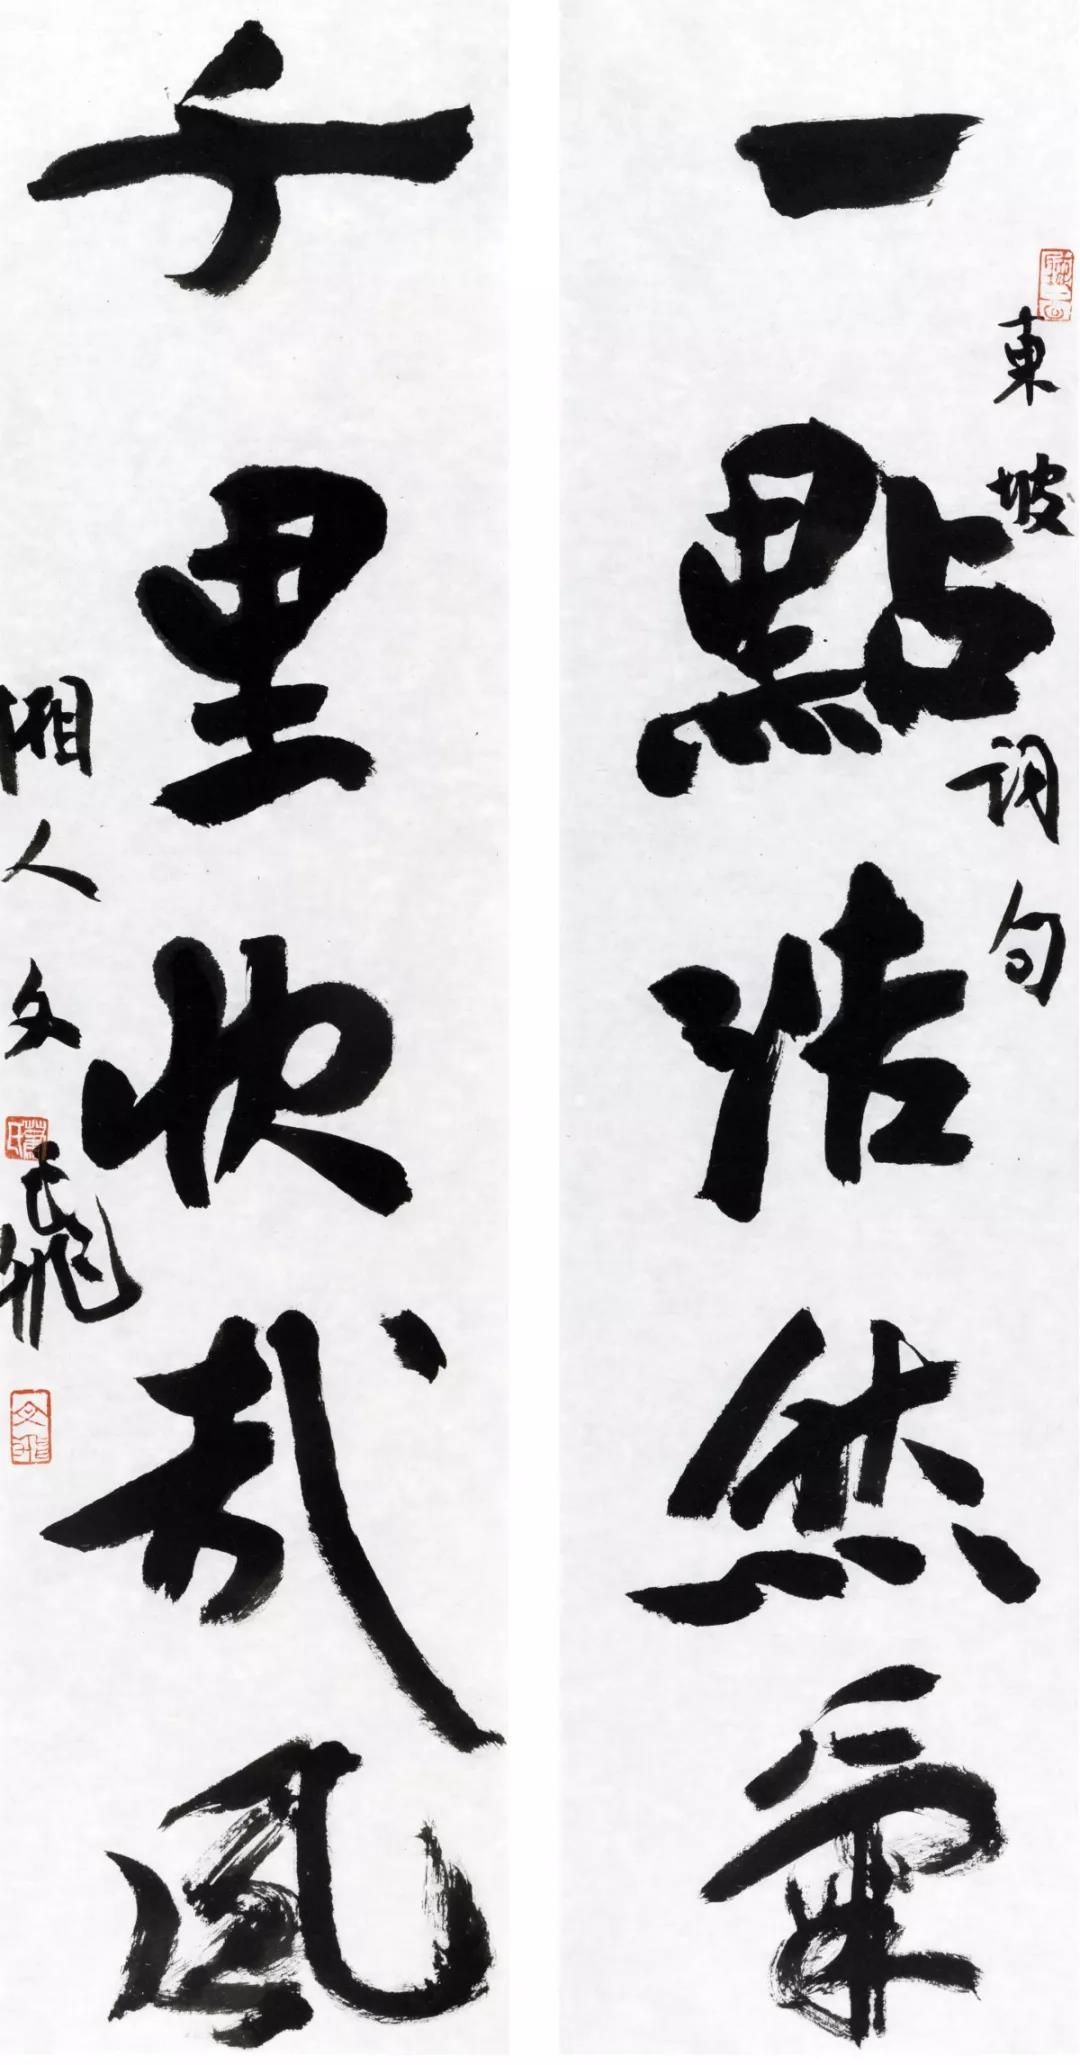 一點浩然氣
東坡詞句
千里快哉風
湘人文飛
蕭氏
文飛